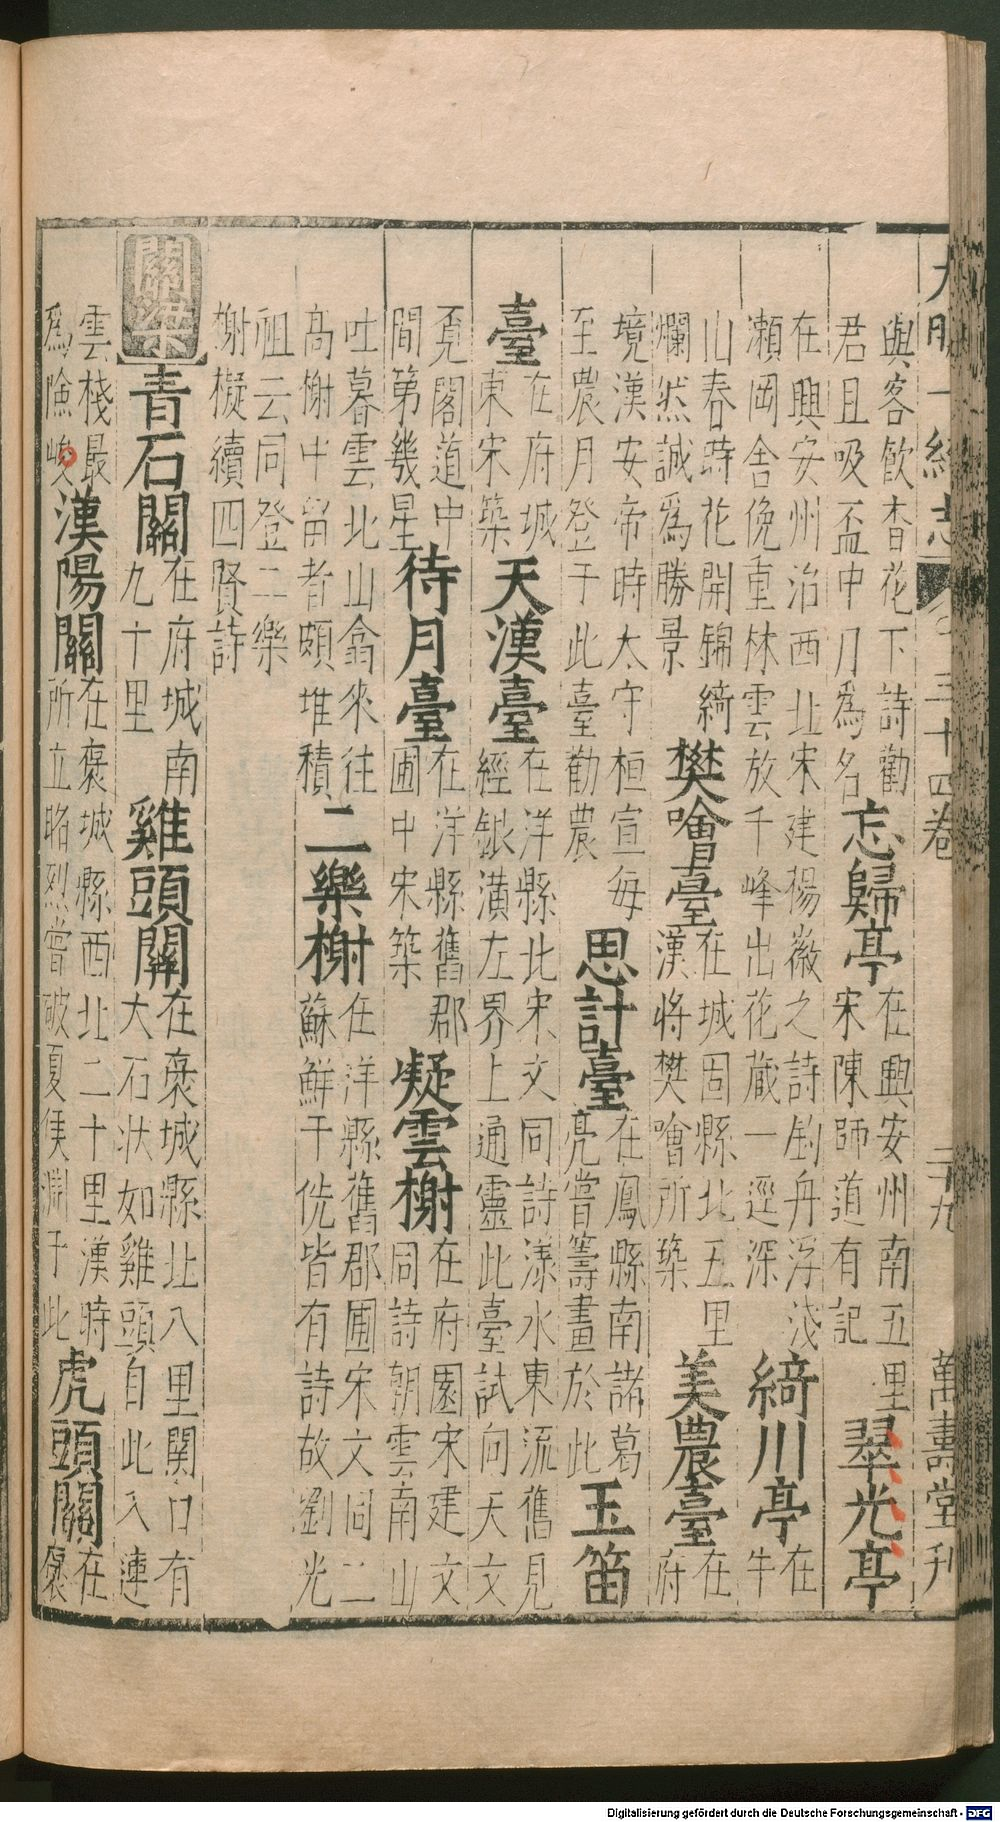 大明一統志 三十四卷 二十九 萬壽堂刊
與客飲杏花下詩勸君且吸盃中月為名忘歸亭在興安州南五里宋陳師道有記翠光亭
在興安州治西北宋建楊徽之詩釣舟浮淺瀨岡舍俛重林雲放千峰出花藏一逕深綺川亭在牛
山春時花開錦綺爛然誠爲勝景樊噲臺在城固縣北五里漢將樊噲所築美農臺在府
境漢安帝時太守桓宣每至農月登于此臺勸農思計臺在鳳縣南諸葛亮嘗籌畫於此玉笛
臺在府城東宋築天漢臺在洋縣北宋文同詩漾水東流舊見經銀潢左界上通靈此臺試向天文
覔閣道中間第幾星待月臺在洋縣舊郡圃中宋築凝雲榭在府園宋建文同詩朝雲南山
吐暮雲北山翕來往高榭中留者頗堆積二樂榭在洋縣舊郡圃宋文同二蘇鮮于侁皆有詩故劉光
祖云同登二樂榭擬續四賢詩
關梁 青石關在府城南九十里雞頭關在褒城縣北八里関口有大石狀如雞頭自此入連
雲棧最爲險峻漢陽關在褒城縣西北二十里漢時所立昭烈嘗破夏侯淵于此虎頭關在褒
Digitalisierung gefördert durch die Deutsche Forschungsgemeinschaft - DFG